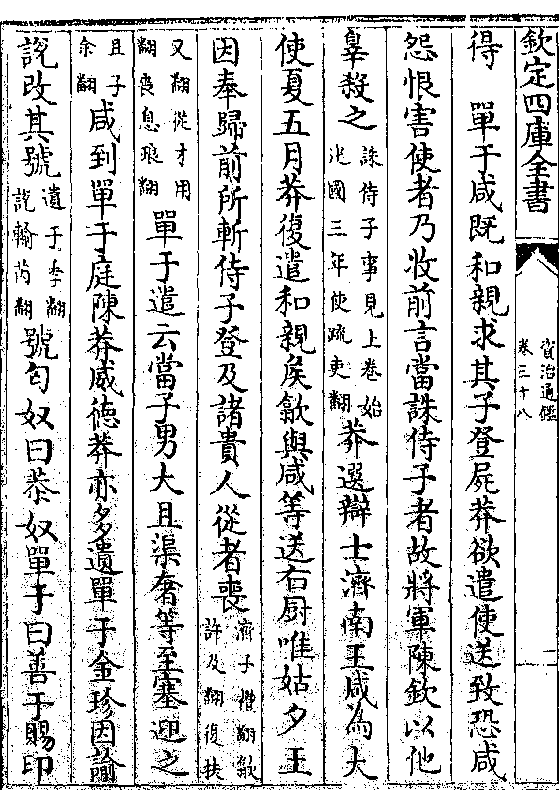 欽定四庫全書
資治通鑑
卷三十八
得　單于咸既和親求其子登屍莽欲遣使送致恐咸
怨恨害使者乃收前言當誅侍子者故將軍陳欽以他
辠殺之誅侍子事見上卷始建國三年使疏吏翻莽選辯士濟南王咸為大
使夏五月莽復遣和親侯歙與咸等送右厨唯姑夕王
因奉歸前所斬侍子登及諸貴人從者喪濟子禮翻歙許及翻復扶
又翻從才用翻喪息琅翻單于遣云當子男大且渠奢等至塞迎之
且子余翻咸到單于庭陳莽威德莽亦多遺單于金珍因諭
說改其號遺于季翻說輸芮翻號匈奴曰恭奴單于曰善于賜印